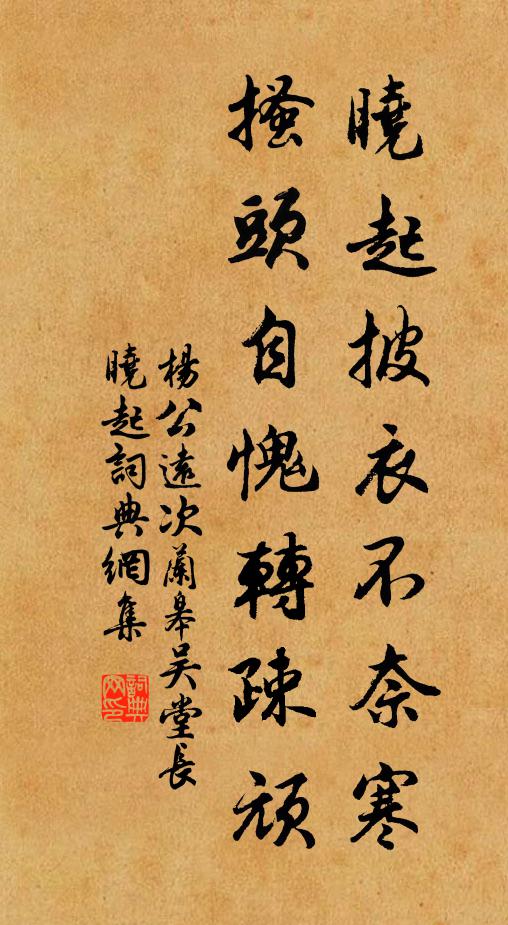 曉起披衣不奈寒
搔頭自愧轉疎頑
楊公遠次蘭皋吴堂長
曉起詞典網集
詞典
网印